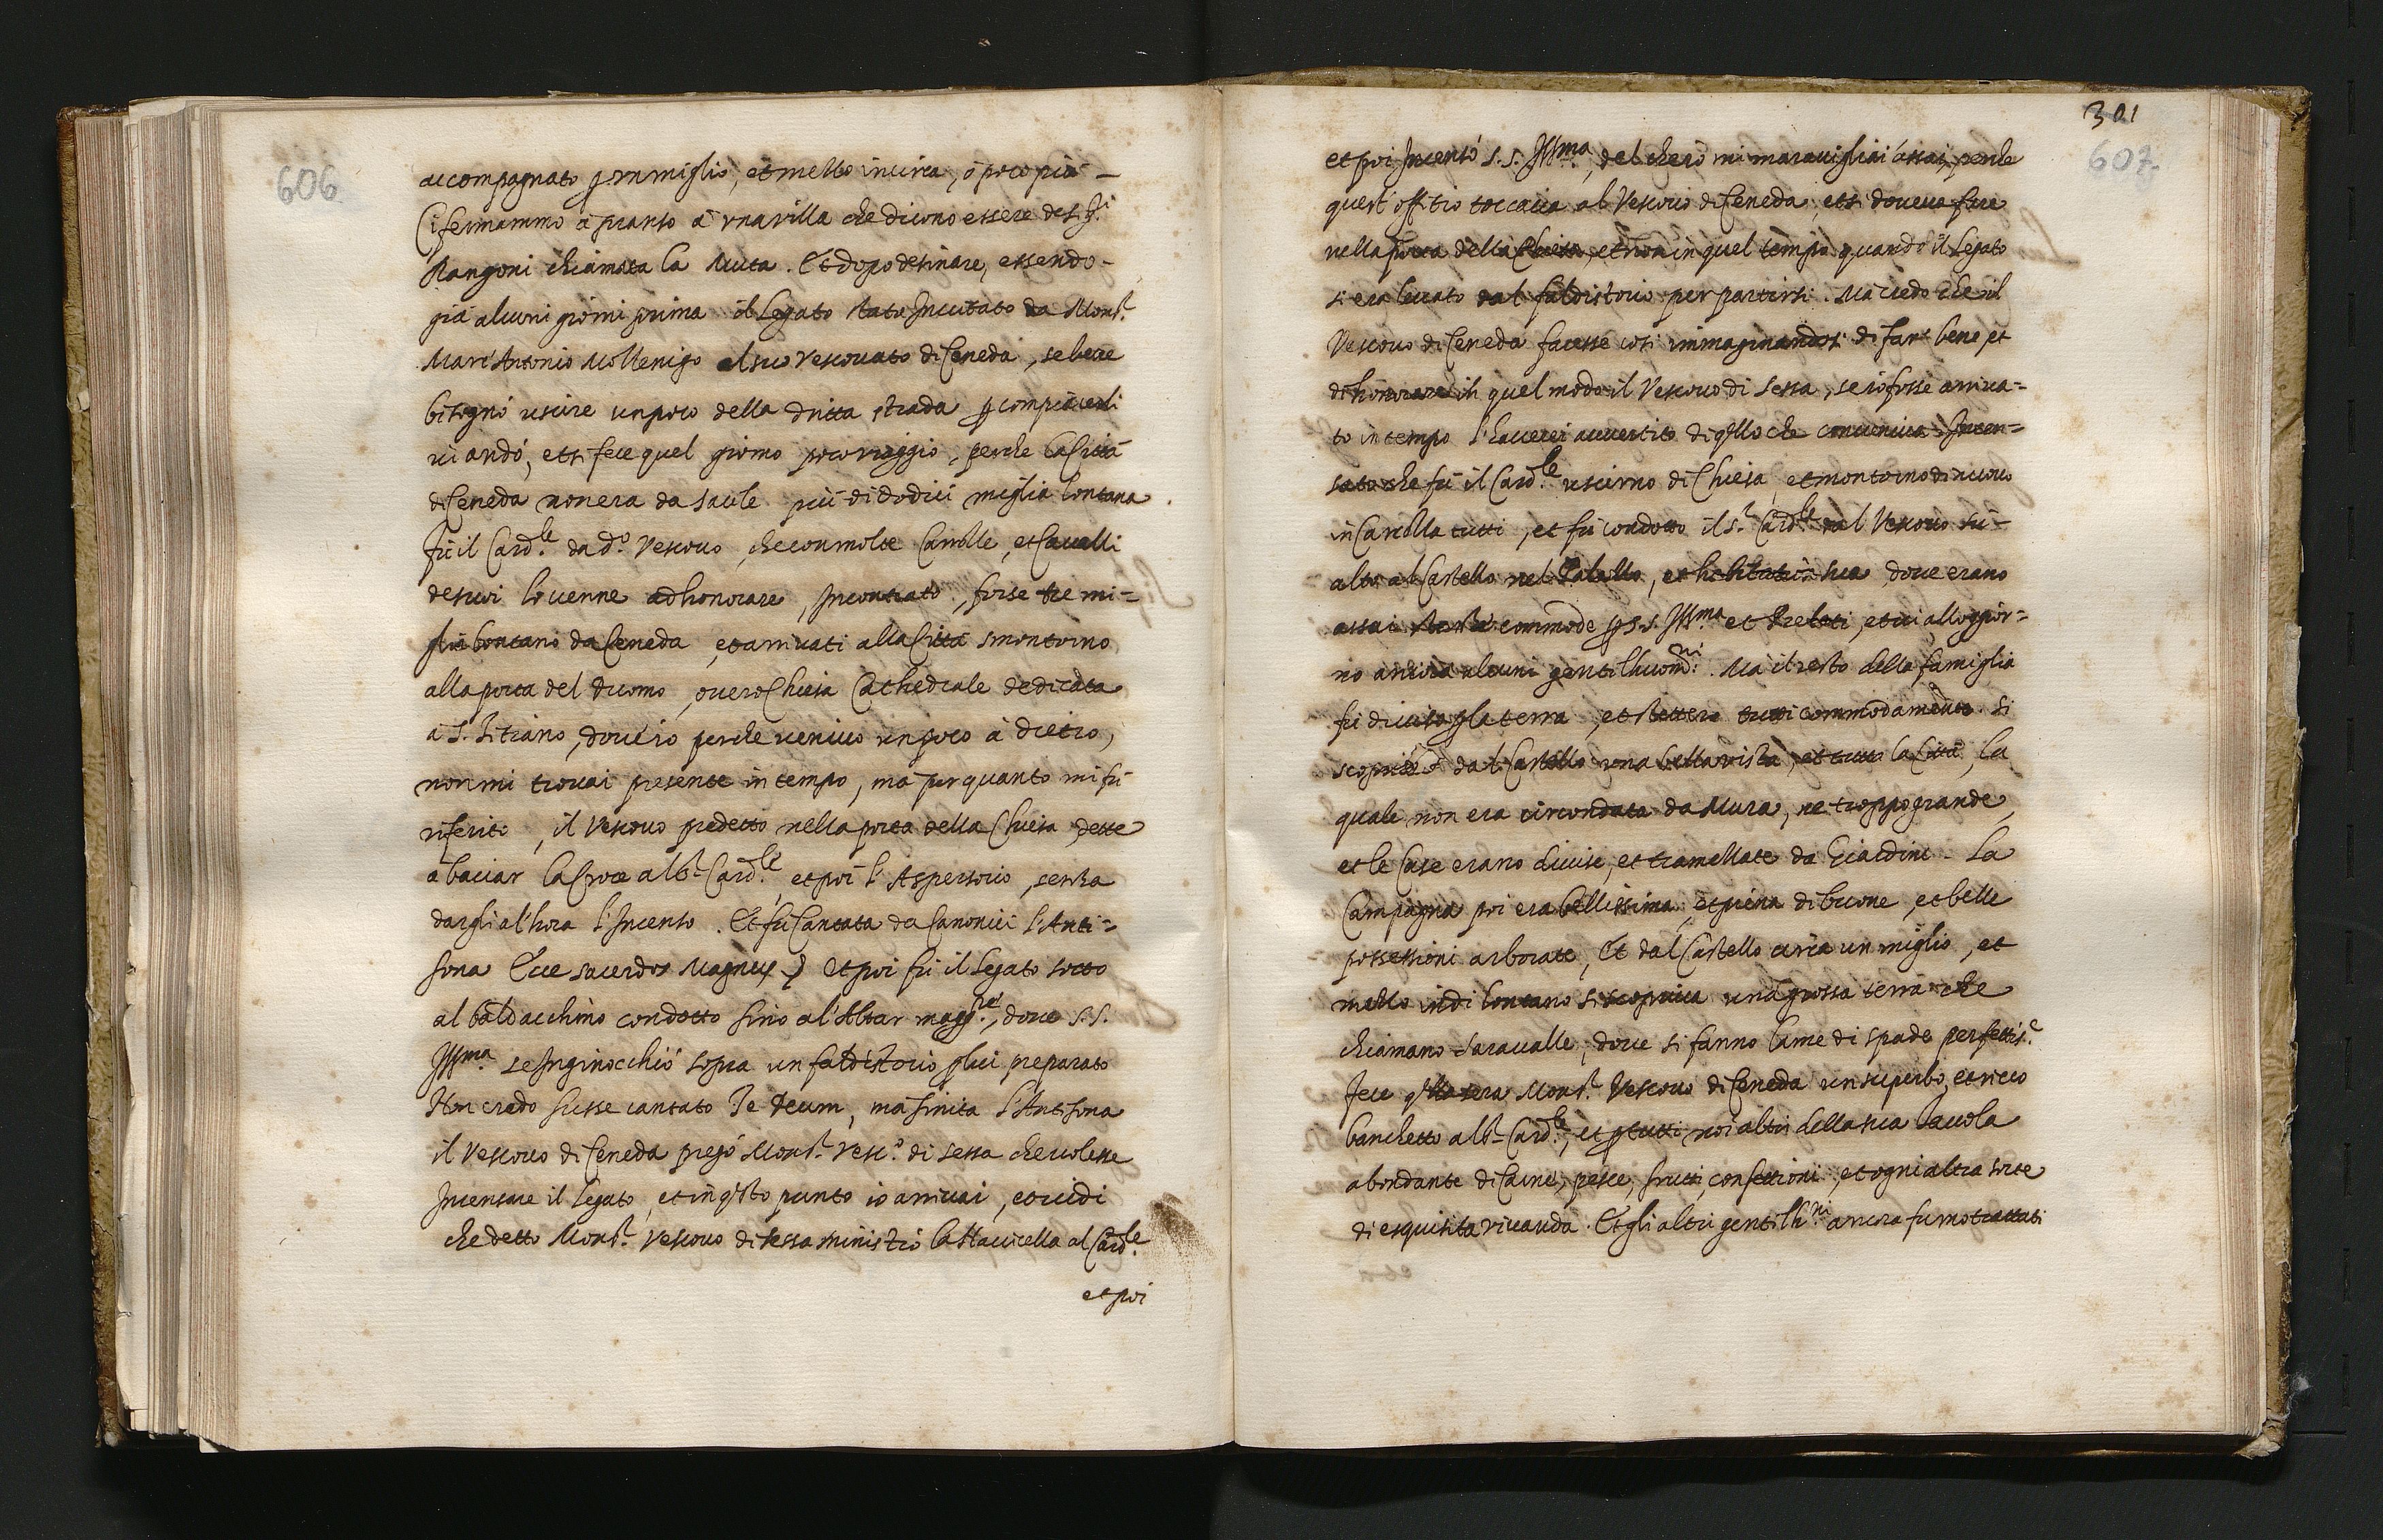 606
accompagnato p un miglio, et mezzo incirca, ò poco più –
Ci fermammo à pranzo à una villa che dicono essere de SSri
Rangoni chiamata la Muta. Et dopo desinare, essendo –
già alcuni giorni prima il Legato stato Invitato da Monsr.
Marc'Antonio Mozzenigo al suo Vescovato di Ceneda, se bene
bisognò uscire un poco della dritta strada p compiacerli
vi andò, et si fece quel giorno poco viaggio, perche la Città
di Ceneda non era da Sacile più di dodici miglia lontana
fu il Cardle. da do. Vescovo, che con molte Carozze, et Cavalli
de suoi lo venne ad honorare, Incontrato, forse tre mi=
glia lontano da Ceneda, et arrivati alla Città smontorno
alla porta del Duomo, overo Chiesa Cathedrale dedicata
à S. Titiano, dov'io perche venivo un poco à dietro,
non mi trovai presente in tempo, mà per quanto mi fù
riferito, il Vescovo predetto nella porta della Chiesa dette
à baciar la Croce al Sr. Cardle. et poi l'Aspersorio, senza
dargli al'hora l'Incenso. Et fù Cantata da Canonici l'Anti=
fona Ecce sacerdos Magnus et poi fù il Legato sotto
al baldacchino condotto sino al'Altar maggre., dove S.S.
Illma. se Inginocchiò sopra un faldistorio p lui preparato
Non credo fusse cantato Te Deum, mà finita l'Antifona
il Vescovo di Ceneda pregò Monsr. Vesco. di Sessa che volesse
Incensare il Legato, et in qsto punto io arrivai, et vidi
che detto Monsr. Vescovo di Sessa ministrò la Navicella al Cardle.
et poi
301
607
et poi Incensò S.S. Illma., del che io mi maravigliai assai, perche
quest'offitio toccava al Vescovo di Ceneda, et si doveva fare
nella porta della Chiesa, et non in quel tempo quando il Legato
si era levato dal faldistorio per partirsi. Ma credo che il
Vescovo di Ceneda facesse così immaginandosi di far bene, et
di honorare in quel modo il Vescovo di Sessa, se io fossi arriva=
to in tempo l'haverei avvertito di qllo che conveniva. Incen=
sato che fù il Cardle. uscirno di Chiesa, et montorno di nuovo
in Carozza tutti, et fù condotto il Sr. Cardle. dal Vescovo sù –
alto al Castello nel Palazzo, et habitatione sua dove erano
assai stanze commode p S.S. Illma. et Prelati, et vi alloggior=
no ancora alcuni gentilhuomni. Ma il resto della famiglia
fù divisa p la terra, et stettero tutti commodamente. Si
scopriva dal Castello una bella vista, et tutta la Città, la
quale non era circondata da Mura, ne troppo grande,
et le Case erano divise, et tramezzate da Giardini. La
Campagna poi era bellissima, et piena di buone, et belle
possessioni arborate, Et dal Castello circa un miglio, et
mezzo indi lontano si scopriva una grossa terra che
chiamano Saravalle, dove si fanno lame di spade perfettise.
Fece qlla sera Monsr. Vescovo di Ceneda un superbo, et ricco
banchetto al Sr. Cardle., et p tutti noi altri della sua Tavola
abondante di Carne, pesce, frutti, confettioni, et ogni altra sorte
di esquisita vivanda. Et gli altri gentilhni. ancora furno trattati